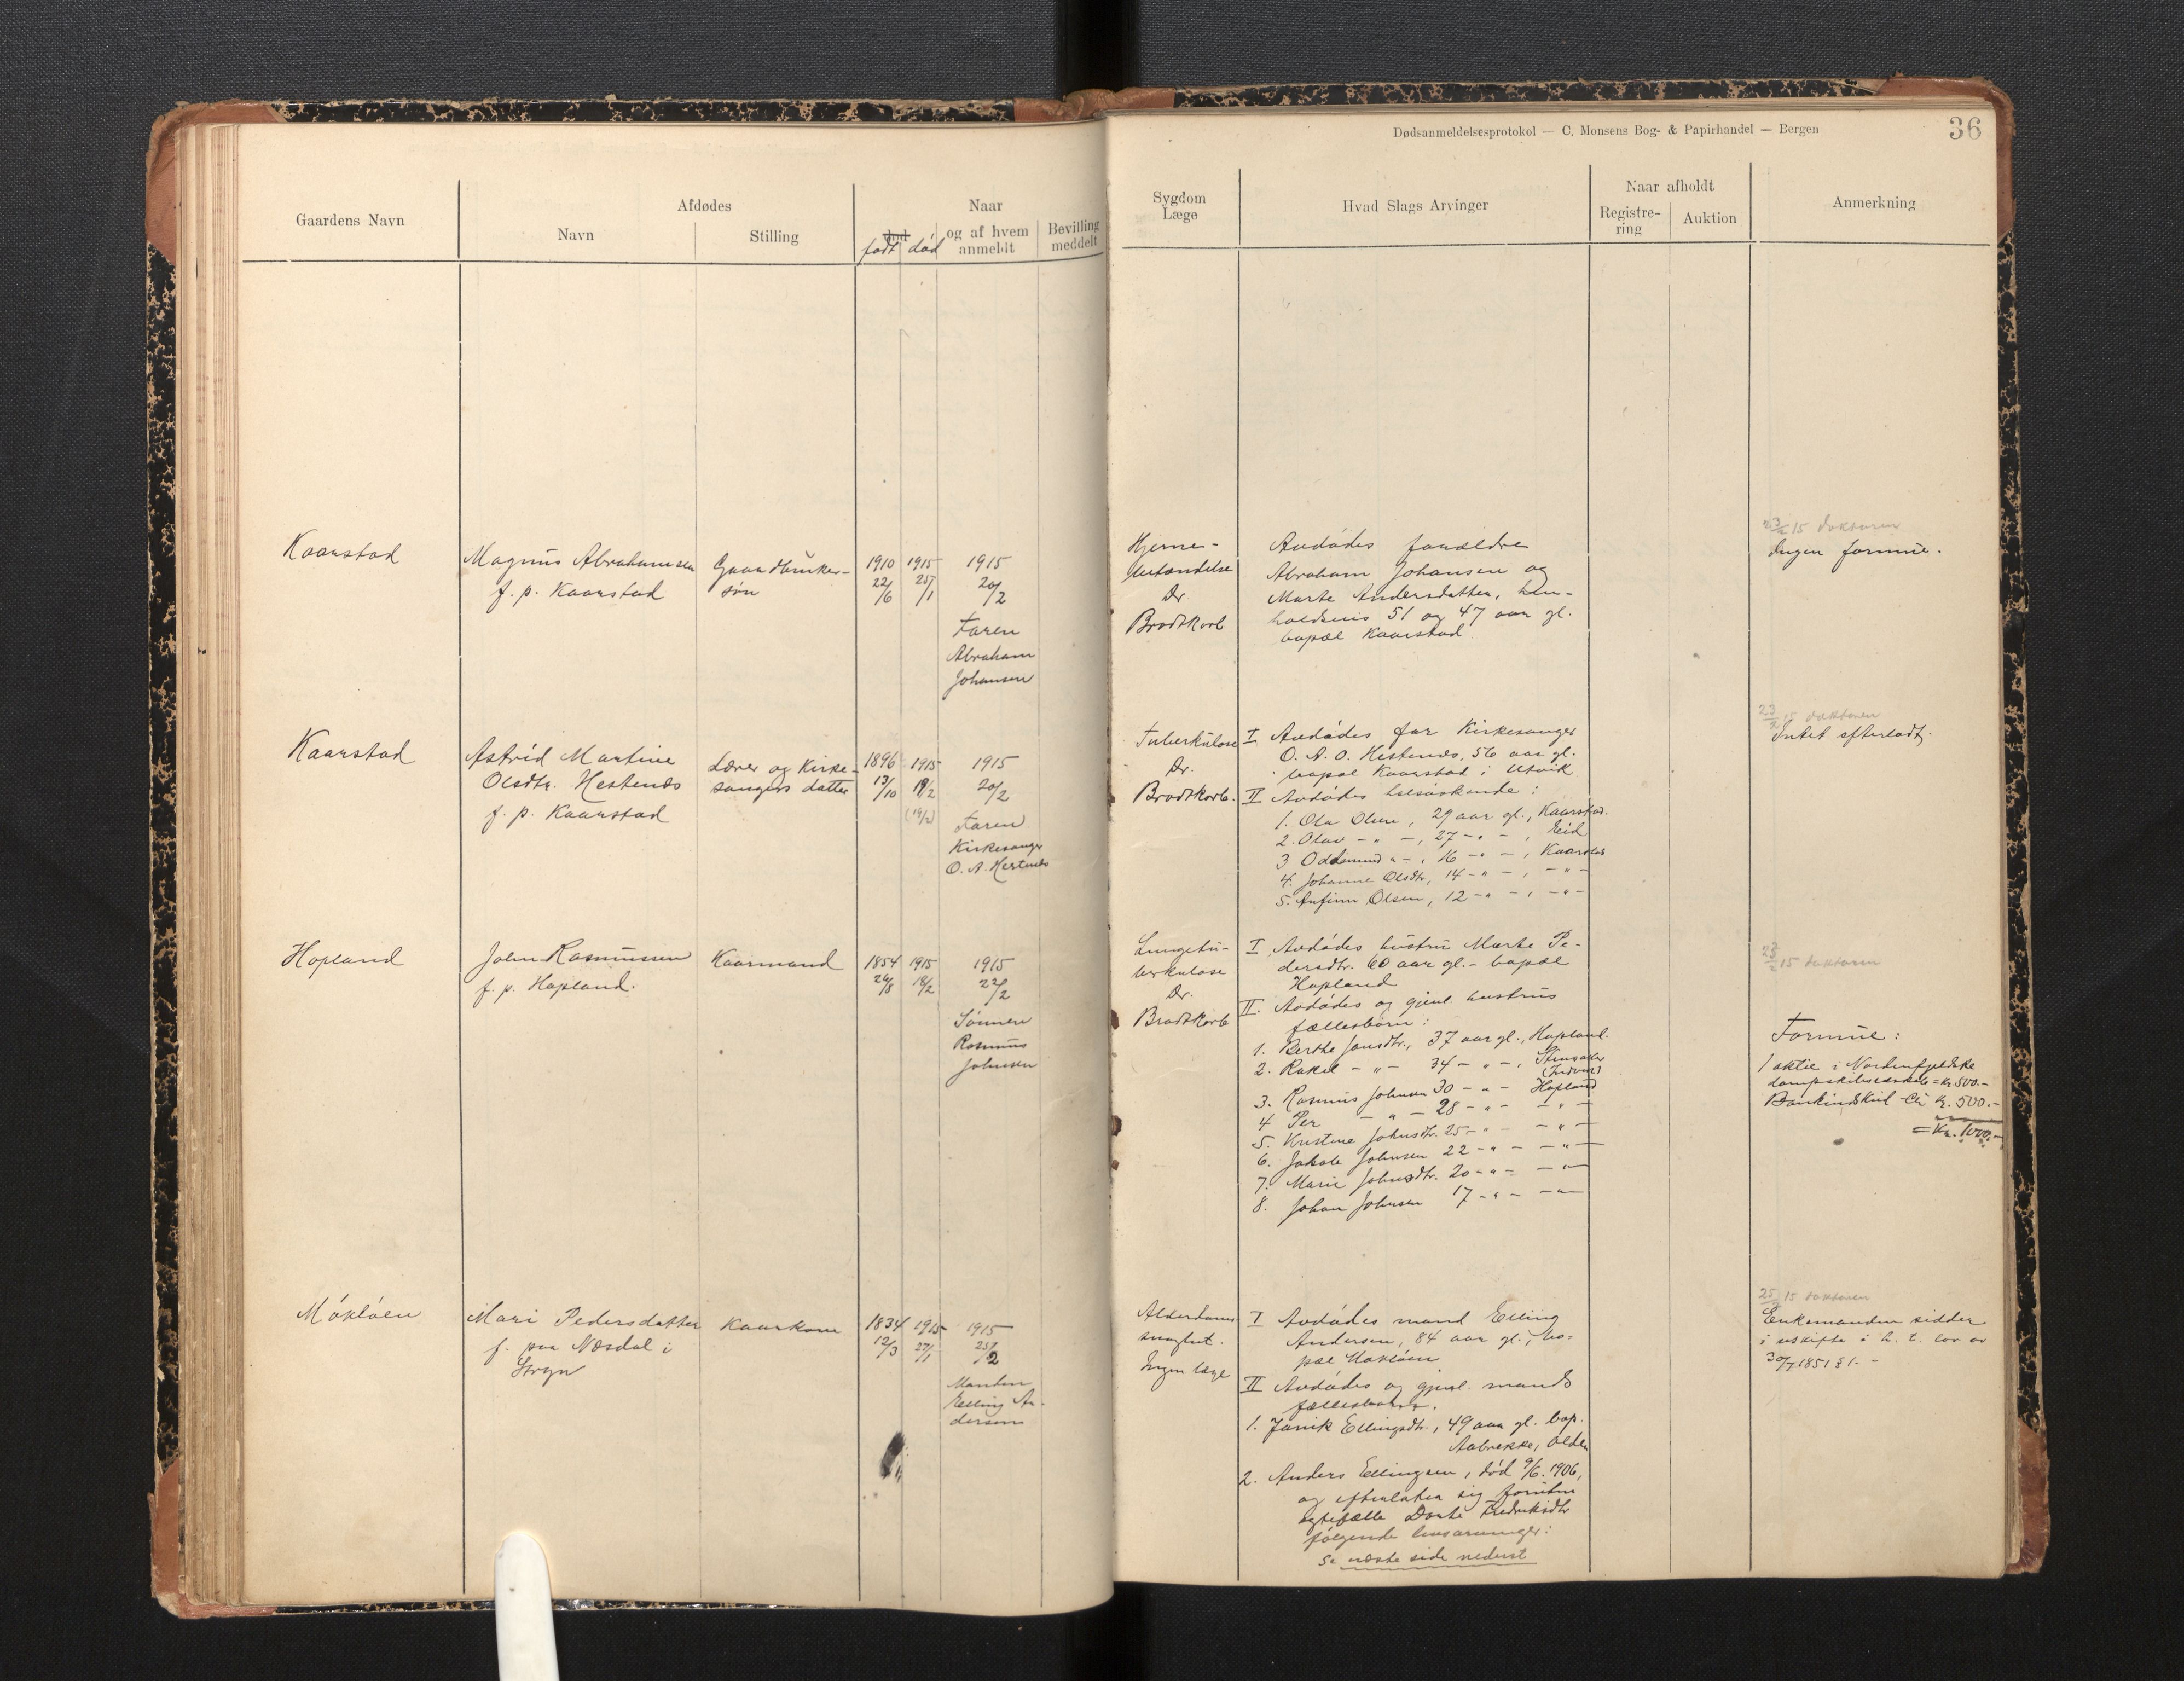 Dødsanmeldelsesprotokol — C. Monsens Bog- & Papirhandel — Bergen
36
Gaardens Navn
Afdødes
Navn
Stilling
Naar
født død
og af hvem anmeldt
Bevilling meddelt
Sygdom
Læge
Hvad Slags Arvinger
Naar afholdt
Registre-
ring
Auktion
Anmerkning
Kaarstad
Magnus Abrahamsen
f. p. Kaarstad
Gaardbruker-
søn
1910
22/6
1915
25/1
1915
20/2
Faren
Abraham
Johansen
Hjerne-
betændelse
Dr.
Brodtkorb
Avdødes forældre
Abraham Johansen og
Marte Andersdatter, hen-
holdsvis 51 og 47 aar gl.
bopæl Kaarstad
23/2 15 doktoren
Ingen formue.
Kaarstad
Astrid Martine
Olsdtr. Hestenes
f. p. Kaarstad
Lærer og Kirke-
sangers datter
1896
13/10
1915
18/2
(19/2)
1915
20/2
Faren
Kirkesanger
O. A. Hestenes
Tuberkulose
Dr.
Brodtkorb.
I Avdødes far Kirkesanger
O. A. O. Hestenes, 56 aar gl.
bopæl Kaarstad i Utvik
II Avdødes helsøskende:
1. Ola Olsen, 29 aar gl., Kaarstad.
2. Olav -"-, 27 -"-, Eid
3 Oddmund -"-, 16 -"-, Kaarstad
4. Johanne Olsdtr, 14 -"-, -"-
5. Anfinn Olsen, 12 -"-, -"-
23/2 15 doktoren
Intet efterladt.
Hopland
John Rasmussen
f. p. Hopland.
Kaarmand
1854
26/8
1915
18/2
1915
22/2
Sønnen
Rasmus
Johnsen
Lungetu-
berkulose
Dr.
Brodtkorb
I Avdødes hustru Marte Pe-
dersdtr. 60 aar gl. - bopæl
Hopland
II. Avdødes og gjenl. hustrus
fællesbørn:
1. Berthe Jonsdtr., 37 aar gl., Hopland.
2. Rakel -"- 34 -"-,
3. Rasmus Johnsen 30 -"- Hopland
4 Per -"- 28 -"- -"-
5. Kristine Johnsdtr. 25 -"- -"-
6. Jakob Johnsen 22 -"- -"-
7. Marie Johnsdtr. 20 -"- -"-
8. Johan Johnsen 17 -"- -"-
23/2 15 doktoren
Formue:
1 aktie i Nordenfjeldske
dampskibsselskab = kr. 500.-
Bankindskud Kr. 500.-
= Kr. 1000.-
Mókløen
Mari Pedersdatter
f. paa Næsdal i
Stryn
Kaarkone
1834
12/3
1915
27/1
1915
25/2
Manden
Elling An-
dersen
Alderdoms
svaghet.
Ingen læge
I Avdødes mand Elling
Andersen, 84 aar gl., bo-
pæl Mokløen
II Avdødes og gjenl. mands
fællesbørn.
1. Janik Ellingsdtr., 49 aar gl. bop.
Aabrekke, Olden
2. Anders Ellingsen, død 9/6. 1906,
og efterlater sig foruten
egtefælle Dorte Fredriksdtr
følgende livsarvinger:
Se næste side nederst
25/2 15 doktoren
Enkemanden sidder
i uskifte i h. t. lov av
30/7 1851 § 1. -